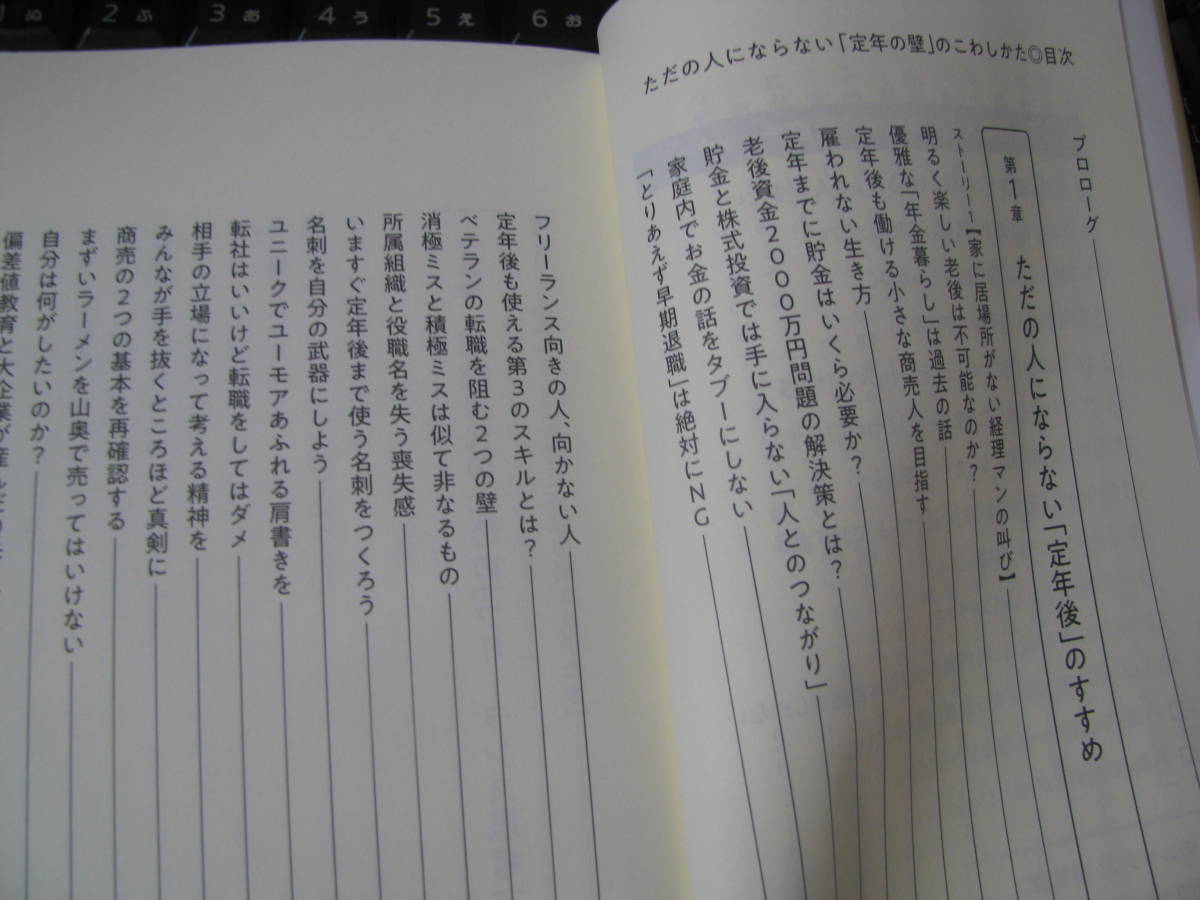 1 ぬ
2 ふ
3 あ
4 う
5 え
6 お
ただの人にならない「定年の壁」のこわしかた◎目次
プロローグ
第1章 ただの人にならない「定年後」のすすめ
ストーリー1【家に居場所がない経理マンの叫び】
明るく楽しい老後は不可能なのか?
優雅な「年金暮らし」は過去の話
定年後も働ける小さな商売人を目指す
雇われない生き方
定年までに貯金はいくら必要か?
老後資金2000万円問題の解決策とは?
貯金と株式投資では手に入らない「人とのつながり」
家庭内でお金の話をタブーにしない
「とりあえず早期退職」は絶対にNG
フリーランス向きの人、向かない人
定年後も使える第3のスキルとは?
ベテランの転職を阻む2つの壁
消極ミスと積極ミスは似て非なるもの
所属組織と役職名を失う喪失感
いますぐ定年後まで使う名刺をつくろう
名刺を自分の武器にしよう
ユニークでユーモアあふれる肩書きを
転社はいいけど転職をしてはダメ
相手の立場になって考える精神を
みんなが手を抜くところほど真剣に
商売の2つの基本を再確認する
まずいラーメンを山奥で売ってはいけない
自分は何がしたいのか?
偏差値教育と大企業が